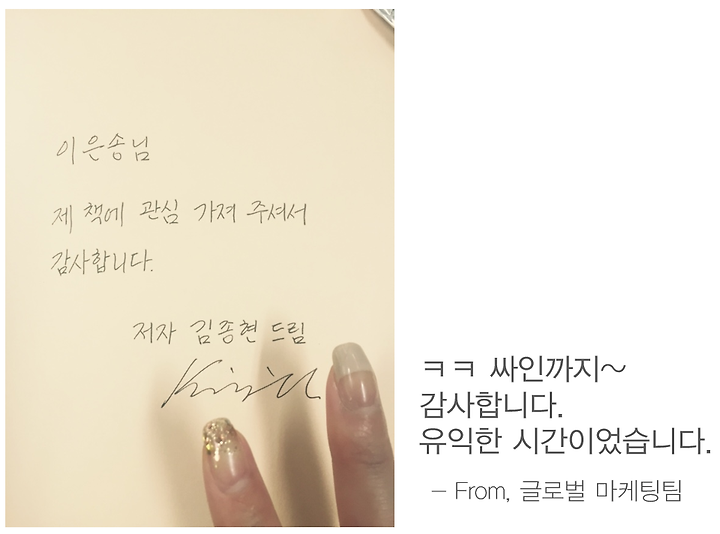 이은송님
제 책에 관심 가져 주셔서
감사합니다.
저자 김종현 드림
ㅋㅋ 싸인까지~
감사합니다.
유익한 시간이었습니다.
- From, 글로벌 마케팅팀